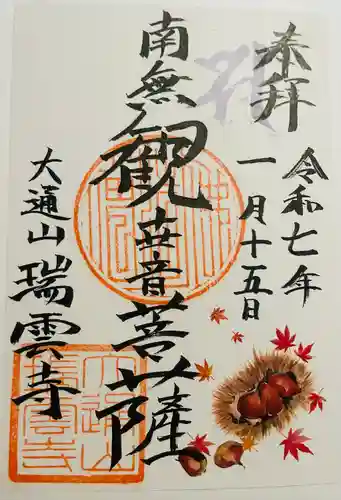 奉拝
令和七年
一月十五日
南無観世音菩薩
大通山瑞雲寺